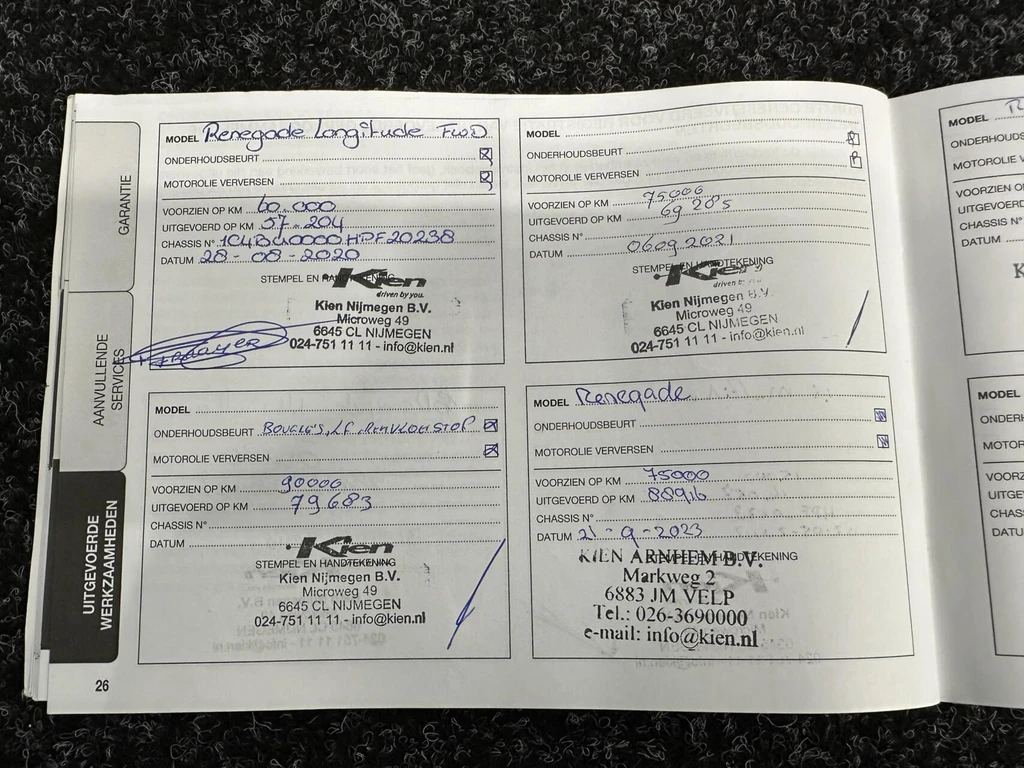 GARANTIE
AANVULLENDE
SERVICES
UITGEVOERDE
WERKZAAMHEDEN
MODEL Renegade Longitude FWD
ONDERHOUDSBEURT
MOTOROLIE VERVERSEN
VOORZIEN OP KM 60.000
UITGEVOERD OP KM 57-204
CHASSIS N°
DATUM 28-08-2020
STEMPEL EN
Kien
driven by you.
Kien Nijmegen B.V.
Microweg 49
6645 CL NIJMEGEN
024-751 11 11 - info@kien.nl
MODEL
ONDERHOUDSBEURT
MOTOROLIE VERVERSEN
VOORZIEN OP KM 75000
UITGEVOERD OP KM 69285
CHASSIS N°
DATUM 06092021
STEMPEL EN HANDTEKENING
Kien
driven by
Kien Nijmegen B.V.
Microweg 49
6645 CL NIJMEGEN
024-751 11 11 - info@kien.nl
MODEL
ONDERHOUDSBEURT
MOTOROLIE VERVERSEN
VOORZIEN OP KM 90000
UITGEVOERD OP KM 79683
CHASSIS N°
DATUM
Kien
STEMPEL EN HANDTEKENING
Kien Nijmegen B.V.
Microweg 49
6645 CL NIJMEGEN
024-751 11 11 - info@kien.nl
MODEL Renegade
ONDERHOUDSBEURT
MOTOROLIE VERVERSEN
VOORZIEN OP KM 75000
UITGEVOERD OP KM 88916
CHASSIS N°
DATUM 21-9-2023
KIEN ARNHEM B.V.
Markweg 2
6883 JM VELP
Tel.: 026-3690000
e-mail: info@kien.nl
26
MODEL
ONDERHOUDS
MOTOROLIE VE
VOORZIEN OP K
UITGEVOERD
CHASSIS N°
DATUM
MODEL
ONDERH
MOTOR
VOORZ
UITGE
CHASS
DATU